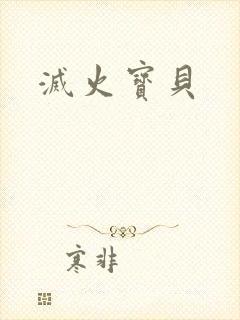 滅火寶貝
寒非